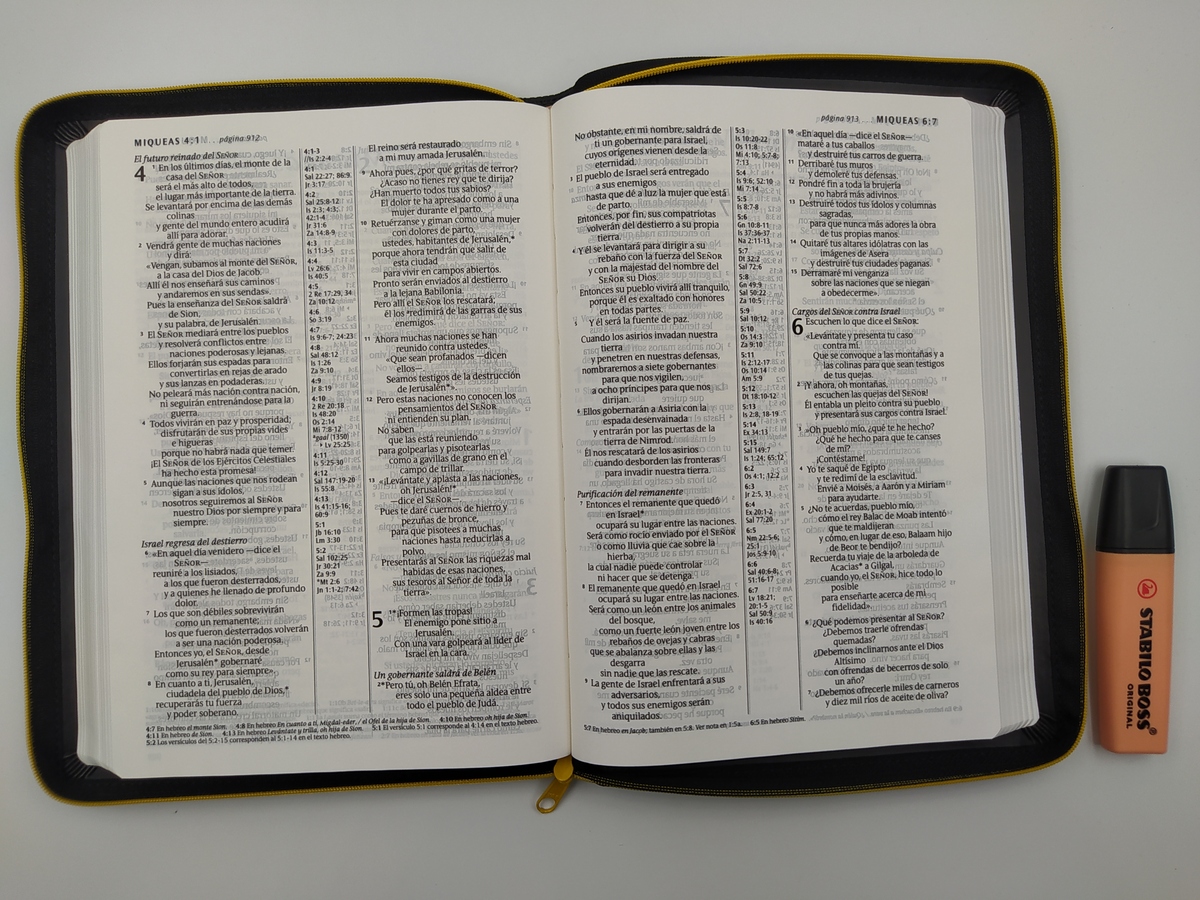 MIQUEAS 4:1 página 912
El futuro reinado del SEÑOR
4 1 En los últimos días, el monte de la
casa del SEÑOR
será el más alto de todos,
el lugar más importante de la tierra.
Se levantará por encima de las demás
colinas
y gente del mundo entero acudirá
allí para adorar.
2 Vendrá gente de muchas naciones
y dirá:
«Vengan, subamos al monte del SEÑOR,
a la casa del Dios de Jacob.
Allí él nos enseñará sus caminos
y andaremos en sus sendas».
Pues la enseñanza del SEÑOR saldrá
de Sion,
y su palabra, de Jerusalén.
3 El SEÑOR mediará entre los pueblos
y resolverá conflictos entre
naciones poderosas y lejanas.
Ellos forjarán sus espadas para
convertirlas en rejas de arado
y sus lanzas en podaderas.
No peleará más nación contra nación,
ni seguirán entrenándose para la
guerra.
4 Todos vivirán en paz y prosperidad;
disfrutarán de sus propias vides
e higueras
porque no habrá nada que temer.
¡El SEÑOR de los Ejércitos Celestiales
ha hecho esta promesa!
5 Aunque las naciones que nos rodean
sigan a sus ídolos,
nosotros seguiremos al SEÑOR
nuestro Dios por siempre y para
siempre.
Israel regresa del destierro
6 «En aquel día venidero —dice el
SEÑOR—
reuniré a los lisiados,
a los que fueron desterrados,
y a quienes he llenado de profundo
dolor.
7 Los que son débiles sobrevivirán
como un remanente;
los que fueron desterrados volverán
a ser una nación poderosa.
Entonces yo, el SEÑOR, desde
Jerusalén* gobernaré
como su rey para siempre».
8 En cuanto a ti, Jerusalén,
ciudadela del pueblo de Dios,*
recuperarás tu fuerza
y poder soberano.
4:1-3
//Is 2:2-4
4:1
Sal 22:27; 86:9
Jr 3:17
4:2
Sal 25:8-12
Is 2:3; 4:3;
42:1-4
Jr 31:6
Za 14:8-9
4:3
Is 11:3-5
4:4
Lv 26:6
Is 40:5
4:5
2 Re 17:29, 34
Za 10:12
4:6
So 3:19
4:7
Is 9:6-7; 24:23
4:8
Sal 48:12
Is 1:26
Za 9:10
4:9
Jr 8:19
4:10
2 Re 20:18
Is 48:20
Os 2:14
Mi 7:8-12
*gaal (1350)
* Lv 25:25
4:11
Is 5:25-30
4:12
Sal 147:19-20
Is 55:8
4:13
Is 41:15-16;
60:9
5:1
Jb 16:10
Lm 3:30
5:2
Sal 102:25
Jr 30:21
Za 9:9
*Mt 2:6
Jn 1:1-2; 7:42
El reino será restaurado
a mi muy amada Jerusalén.
9 Ahora pues, ¿por qué gritas de terror?
¿Acaso no tienes rey que te dirija?
¿Han muerto todos tus sabios?
El dolor te ha apresado como a una
mujer durante el parto.
10 Retuérzanse y giman como una mujer
con dolores de parto,
ustedes, habitantes de Jerusalén,*
porque ahora tendrán que salir de
esta ciudad
para vivir en campos abiertos.
Pronto serán enviados al destierro
a la lejana Babilonia.
Pero allí el SEÑOR los rescatará;
él los *redimirá de las garras de sus
enemigos.
11 Ahora muchas naciones se han
reunido contra ustedes.
«Que sean profanados —dicen
ellos—.
Seamos testigos de la destrucción
de Jerusalén*».
12 Pero estas naciones no conocen los
pensamientos del SEÑOR
ni entienden su plan.
No saben
que las está reuniendo
para golpearlas y pisotearlas
como a gavillas de grano en el
campo de trillar.
13 «¡Levántate y aplasta a las naciones,
oh Jerusalén!*
—dice el SEÑOR—.
Pues te daré cuernos de hierro y
pezuñas de bronce,
para que pisotees a muchas
naciones hasta reducirlas a
polvo.
Presentarás al SEÑOR las riquezas mal
habidas de esas naciones,
sus tesoros al Señor de toda la
tierra».
5 1*¡Formen las tropas!
El enemigo pone sitio a
Jerusalén.
Con una vara golpeará al líder de
Israel en la cara.
Un gobernante saldrá de Belén
2*Pero tú, oh Belén Efrata,
eres solo una pequeña aldea entre
todo el pueblo de Judá.
4:7 En hebreo el monte Sion. 4:8 En hebreo En cuanto a ti, Migdal-eder, / el Ofel de la hija de Sion. 4:10 En hebreo oh hija de Sion.
4:11 En hebreo de Sion. 4:13 En hebreo Levántate y trilla, oh hija de Sion. 5:1 El versículo 5:1 corresponde al 4:14 en el texto hebreo.
5:2 Los versículos del 5:2-15 corresponden al 5:1-14 en el texto hebreo.
página 913 MIQUEAS 6:7
No obstante, en mi nombre, saldrá de
ti un gobernante para Israel,
cuyos orígenes vienen desde la
eternidad.
3 El pueblo de Israel será entregado
a sus enemigos
hasta que dé a luz la mujer que está
de parto.
Entonces, por fin, sus compatriotas
volverán del destierro a su propia
tierra.
4 Y él se levantará para dirigir a su
rebaño con la fuerza del SEÑOR
y con la majestad del nombre del
SEÑOR su Dios.
Entonces su pueblo vivirá allí tranquilo,
porque él es exaltado con honores
en todas partes.
5 Y él será la fuente de paz.
Cuando los asirios invadan nuestra
tierra
y penetren en nuestras defensas,
nombraremos a siete gobernantes
para que nos vigilen,
a ocho príncipes para que nos
dirijan.
6 Ellos gobernarán a Asiria con la
espada desenvainada
y entrarán por las puertas de la
tierra de Nimrod.
Él nos rescatará de los asirios
cuando desborden las fronteras
para invadir nuestra tierra.
Purificación del remanente
7 Entonces el remanente que quedó
en Israel*
ocupará su lugar entre las naciones.
Será como rocío enviado por el SEÑOR
o como lluvia que cae sobre la
hierba,
la cual nadie puede controlar
ni hacer que se detenga.
8 El remanente que quedó en Israel
ocupará su lugar entre las naciones.
Será como un león entre los animales
del bosque,
como un fuerte león joven entre los
rebaños de ovejas y cabras
que se abalanza sobre ellas y las
desgarra
sin nadie que las rescate.
9 La gente de Israel enfrentará a sus
adversarios,
y todos sus enemigos serán
aniquilados.
5:3
Is 10:20-22
Os 11:8
Mi 4:10; 5:7-8;
7:13
5:4
Is 9:6; 52:10
Mi 7:14
5:5
Is 8:7-8
5:6
Gn 10:8-11
Is 37:36-37
Na 2:11-13
5:7
Dt 32:2
Sal 72:6
5:8
Gn 49:9
Sal 50:22
Za 10:5
5:9
Sal 10:12
5:10
Os 14:3
Za 9:10
5:11
Is 2:12-17
Os 10:14
Am 5:9
5:12
Dt 18:10-12
5:13
Is 2:8, 18-19
5:14
Ex 34:13
5:15
Sal 149:7
Is 1:24; 65:12
6:2
Os 4:1; 12:2
6:3
Jr 2:5, 31
6:4
Ex 20:1-2
Sal 77:20
6:5
Nm 22:5-6;
25:1
Jos 5:9-10
6:6
Sal 40:6-8;
51:16-17
6:7
Lv 18:21;
20:1-5
Sal 50:9
Is 40:16
10 «En aquel día —dice el SEÑOR—
mataré a tus caballos
y destruiré tus carros de guerra.
11 Derribaré tus muros
y demoleré tus defensas.
12 Pondré fin a toda la brujería
y no habrá más adivinos.
13 Destruiré todos tus ídolos y columnas
sagradas,
para que nunca más adores la obra
de tus propias manos.
14 Quitaré tus altares idólatras con las
imágenes de Asera
y destruiré tus ciudades paganas.
15 Derramaré mi venganza
sobre las naciones que se niegan
a obedecerme».
Cargos del SEÑOR contra Israel
6 Escuchen lo que dice el SEÑOR:
«Levántate y presenta tu caso
contra mí.
Que se convoque a las montañas y a
las colinas para que sean testigos
de tus quejas.
2 ¡Y ahora, oh montañas,
escuchen las quejas del SEÑOR!
Él entabla un pleito contra su pueblo
y presentará sus cargos contra Israel.
3 »Oh pueblo mío, ¿qué te he hecho?
¿Qué he hecho para que te canses
de mí?
¡Contéstame!
4 Yo te saqué de Egipto
y te redimí de la esclavitud.
Envié a Moisés, a Aarón y a Miriam
para ayudarte.
5 ¿No te acuerdas, pueblo mío,
cómo el rey Balac de Moab intentó
que te maldijeran
y cómo, en lugar de eso, Balaam hijo
de Beor te bendijo?
Recuerda tu viaje de la arboleda de
Acacias* a Gilgal,
cuando yo, el SEÑOR, hice todo lo
posible
para enseñarte acerca de mi
fidelidad».
6 ¿Qué podemos presentar al SEÑOR?
¿Debemos traerle ofrendas
quemadas?
¿Debemos inclinarnos ante el Dios
Altísimo
con ofrendas de becerros de solo
un año?
7 ¿Debemos ofrecerle miles de carneros
y diez mil ríos de aceite de oliva?
5:7 En hebreo en Jacob; también en 5:8. Ver nota en 1:5a. 6:5 En hebreo Sitim.
STABILO BOSS®
ORIGINAL